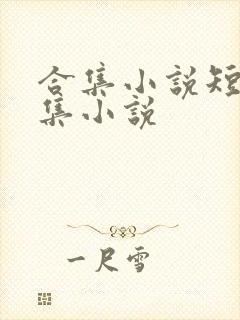 合集小说短
集小说
一尺雪